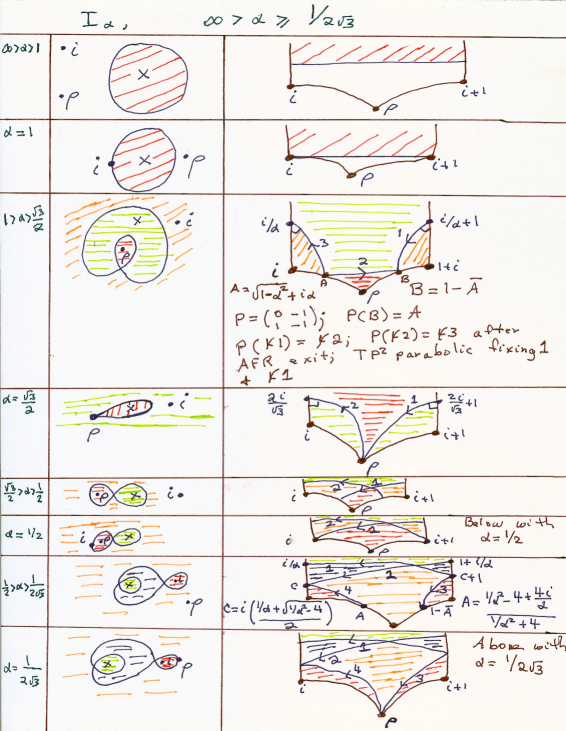 I α, ∞ > α ≥ 1/2√3
∞>α>1
·i
x
·ρ
i
i+1
ρ
α=1
i
x
·ρ
i
i+1
ρ
1>α>√3/2
x
·i
ρ
i/α
3
1
i/α+1
2
i
A
B
1+i
ρ
A=√1-α²+iα
B=1-Ā
P=(0 -1
1 -1); P(B)=A
P(K1)=K2; P(K2)=K3 after
AFR exit; TP² parabolic fixing 1
+ K1
α=√3/2
x
·i
ρ
2i/√3
2
1
2i/√3+1
i
i+1
ρ
√3/2>α>1/2
ρ
x
i·
2
1
i
i+1
ρ
α=1/2
i
ρ
x
2
1
i
i+1
ρ
Below with
α=1/2
1/2>α>1/2√3
x
i
·ρ
i/α
1
2
1+i/α
C
C+1
4
3
A
1-Ā
C=i(1/α+√1/α²-4/2)
A=1/α²-4+4i/α/1/α²+4
α=1/2√3
x
i
ρ
1
2
4
3
i
i+1
ρ
Above with
α=1/2√3